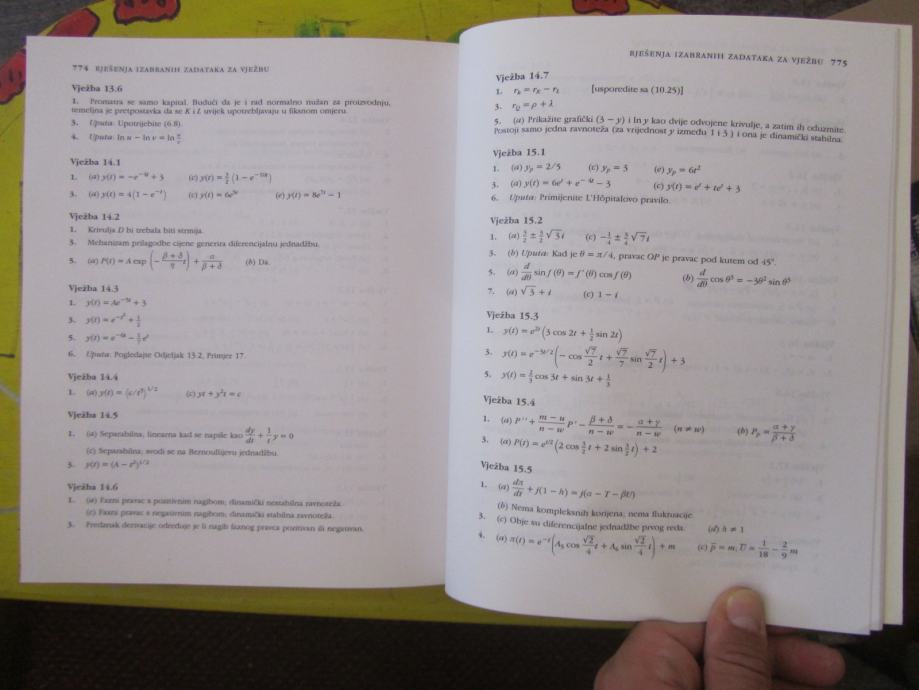 774 RJEŠENJA IZABRANIH ZADATAKA ZA VJEŽBU
Vježba 13.6
1. Promatra se samo kapital. Budući da je i rad normalno nužan za proizvodnju,
temeljna je pretpostavka da se K i L uvijek upotrebljavaju u fiksnom omjeru.
3. Uputa: Upotrijebite (6.8).
4. Uputa: ln u − ln v = ln u/v
Vježba 14.1
1. (a) y(t) = −e^{−4t} + 3 (c) y(t) = 3/2 (1 − e^{−10t})
3. (a) y(t) = 4(1 − e^{−t}) (c) y(t) = 6e^{5t} (e) y(t) = 8e^{7t} − 1
Vježba 14.2
1. Krivulja D bi trebala biti strmija.
3. Mehanizam prilagodbe cijene generira diferencijalnu jednadžbu.
5. (a) P(t) = A exp (−(β + δ)/η t) + α/(β + δ) (b) Da.
Vježba 14.3
1. y(t) = Ae^{−5t} + 3
3. y(t) = e^{−t²} + 1/2
5. y(t) = e^{−6t} − 1/7 e^t
6. Uputa: Pogledajte Odjeljak 13.2, Primjer 17.
Vježba 14.4
1. (a) y(t) = (c/t³)^{1/2} (c) yt + y²t = c
Vježba 14.5
1. (a) Separabilna; linearna kad se napiše kao dy/dt + 1/t y = 0
(c) Separabilna; svodi se na Bernoullijevu jednadžbu.
3. y(t) = (A − t²)^{1/2}
Vježba 14.6
1. (a) Fazni pravac s pozitivnim nagibom; dinamički nestabilna ravnoteža.
(c) Fazni pravac s negativnim nagibom; dinamički stabilna ravnoteža.
3. Predznak derivacije određuje je li nagib faznog pravca pozitivan ili negativan.
RJEŠENJA IZABRANIH ZADATAKA ZA VJEŽBU 775
Vježba 14.7
1. r_k = r_K − r_L [usporedite sa (10.25)]
3. r_Q = ρ + λ
5. (a) Prikažite grafički (3 − y) i ln y kao dvije odvojene krivulje, a zatim ih oduzmite.
Postoji samo jedna ravnoteža (za vrijednost y između 1 i 3) i ona je dinamički stabilna.
Vježba 15.1
1. (a) y_p = 2/5 (c) y_p = 3 (e) y_p = 6t²
3. (a) y(t) = 6e^t + e^{−4t} − 3 (c) y(t) = e^t + te^t + 3
6. Uputa: Primijenite L'Hôpitalovo pravilo.
Vježba 15.2
1. (a) 3/2 ± 3/2 √3 i (c) −1/4 ± 3/4 √7 i
3. (b) Uputa: Kad je θ = π/4, pravac OP je pravac pod kutom od 45°.
5. (a) d/dθ sin f(θ) = f'(θ) cos f(θ) (b) d/dθ cos θ³ = −3θ² sin θ³
7. (a) √3 + i (c) 1 − i
Vježba 15.3
1. y(t) = e^{2t} (3 cos 2t + 1/2 sin 2t)
3. y(t) = e^{−3t/2} (− cos √7/2 t + √7/7 sin √7/2 t) + 3
5. y(t) = 2/3 cos 3t + sin 3t + 1/3
Vježba 15.4
1. (a) P'' + (m − u)/(n − w) P' − (β + δ)/(n − w) = −(α + γ)/(n − w) (n ≠ w) (b) P_p = (α + γ)/(β + δ)
3. (a) P(t) = e^{t/2} (2 cos 3/2 t + 2 sin 3/2 t) + 2
Vježba 15.5
1. (a) dπ/dt + j(1 − h) = j(α − T − βU)
(b) Nema kompleksnih korijena; nema fluktuacije.
3. (c) Obje su diferencijalne jednadžbe prvog reda. (d) h ≠ 1
4. (a) π(t) = e^{−t} (A₅ cos √2/4 t + A₆ sin √2/4 t) + m (c) P̄ = m; Ū = 1/18 − 2/9 m